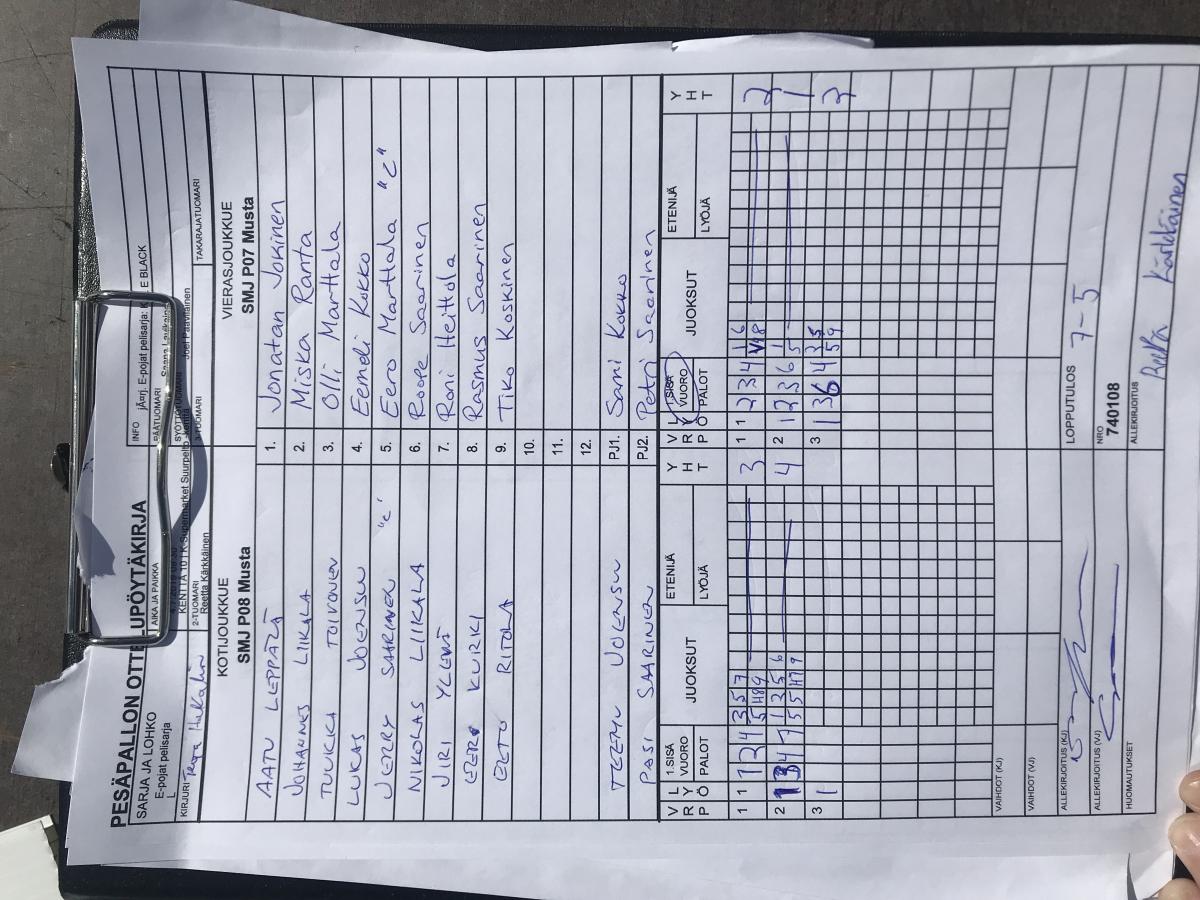 PESÄPALLON OTTELUPÖYTÄKIRJA
SARJA JA LOHKO
E-pojat pelisarja
L
AIKA JA PAIKKA
KENTTÄ 10 | K-Supermarket Suurpelto -kenttä
INFO
E-pojat pelisarja:
E BLACK
PÄÄTUOMARI
SYÖTTÖTUOMARI
KIRJURI
2-TUOMARI
Reetta Kärkkäinen
3-TUOMARI
Joel Paavilainen
TAKARAJATUOMARI
KOTIJOUKKUE
SMJ P08 Musta
VIERASJOUKKUE
SMJ P07 Musta
AATU LEPPÄLÄ 1. Jonatan Jokinen
JOHANNES LIIKALA 2. Miska Ranta
TUUKKA TOIVONEN 3. Olli Marttala
LUKAS JOENSUU 4. Eemeli Kokko
JERRY SAARINEN "C" 5. Eero Marttala "C"
NIKOLAS LIIKALA 6. Roope Saarinen
JIRI YLENÄ 7. Roni Heittola
EERO KURKI 8. Rasmus Saarinen
EETU RITOLA 9. Tiko Koskinen
10.
11.
12.
TEEMU JOENSUU PJ1. Sami Kokko
PASI SAARINEN PJ2. Petri Saarinen
V R P L Y Ö 1.SISÄ VUORO PALOT JUOKSUT ETENIJÄ LYÖJÄ Y H T V R P L Y Ö 1.SISÄ VUORO PALOT JUOKSUT ETENIJÄ LYÖJÄ Y H T
1 1 1 2 4 3 5 7 3 1 1 2 3 4 2
2 4 2 1 2 3 6 1
3 1 3 1 3 6 4 2
VAIHDOT (KJ)
VAIHDOT (VJ)
ALLEKIRJOITUS (KJ)
LOPPUTULOS
7-5
ALLEKIRJOITUS (VJ)
NRO
740108
HUOMAUTUKSET
ALLEKIRJOITUS
Kärkkäinen